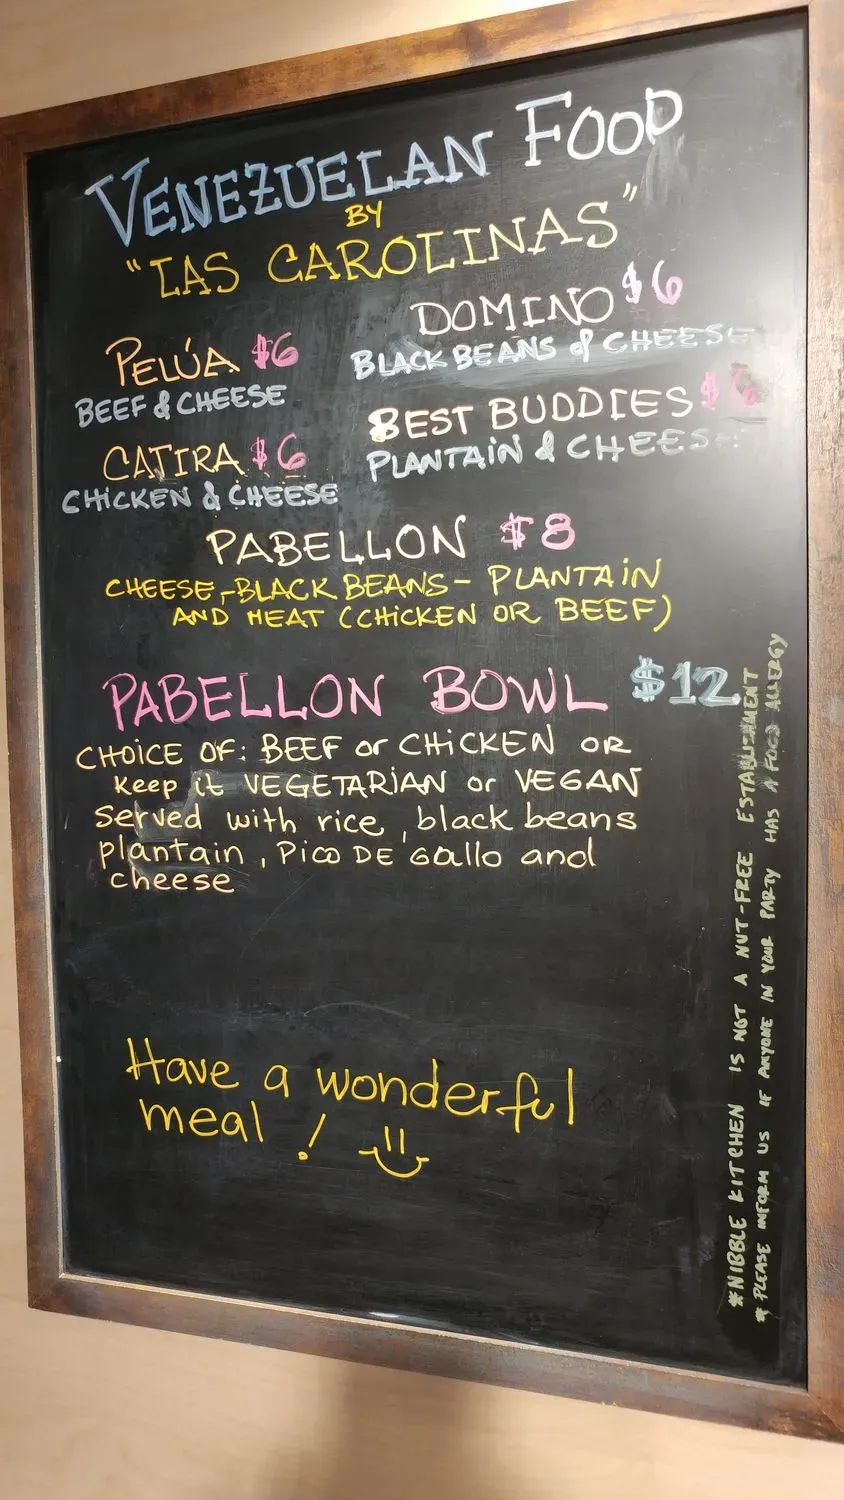 VENEZUELAN FOOD
BY
"LAS CAROLINAS"
PELÚA $6
BEEF & CHEESE
CATIRA $6
CHICKEN & CHEESE
DOMINO $6
BLACK BEANS & CHEESE
BEST BUDDIES $6
PLANTAIN & CHEESE
PABELLON $8
CHEESE-BLACK BEANS- PLANTAIN
AND MEAT (CHICKEN OR BEEF)
PABELLON BOWL $12
CHOICE OF: BEEF or CHICKEN OR
Keep it VEGETARIAN or VEGAN
Served with rice, black beans
plantain, PICO DE Gallo and
cheese
Have a wonderful
meal!
*NIBBLE KITCHEN IS NOT A NUT-FREE ESTABLISHMENT
* PLEASE INFORM US IF ANYONE IN YOUR PARTY HAS A FOOD ALLERGY